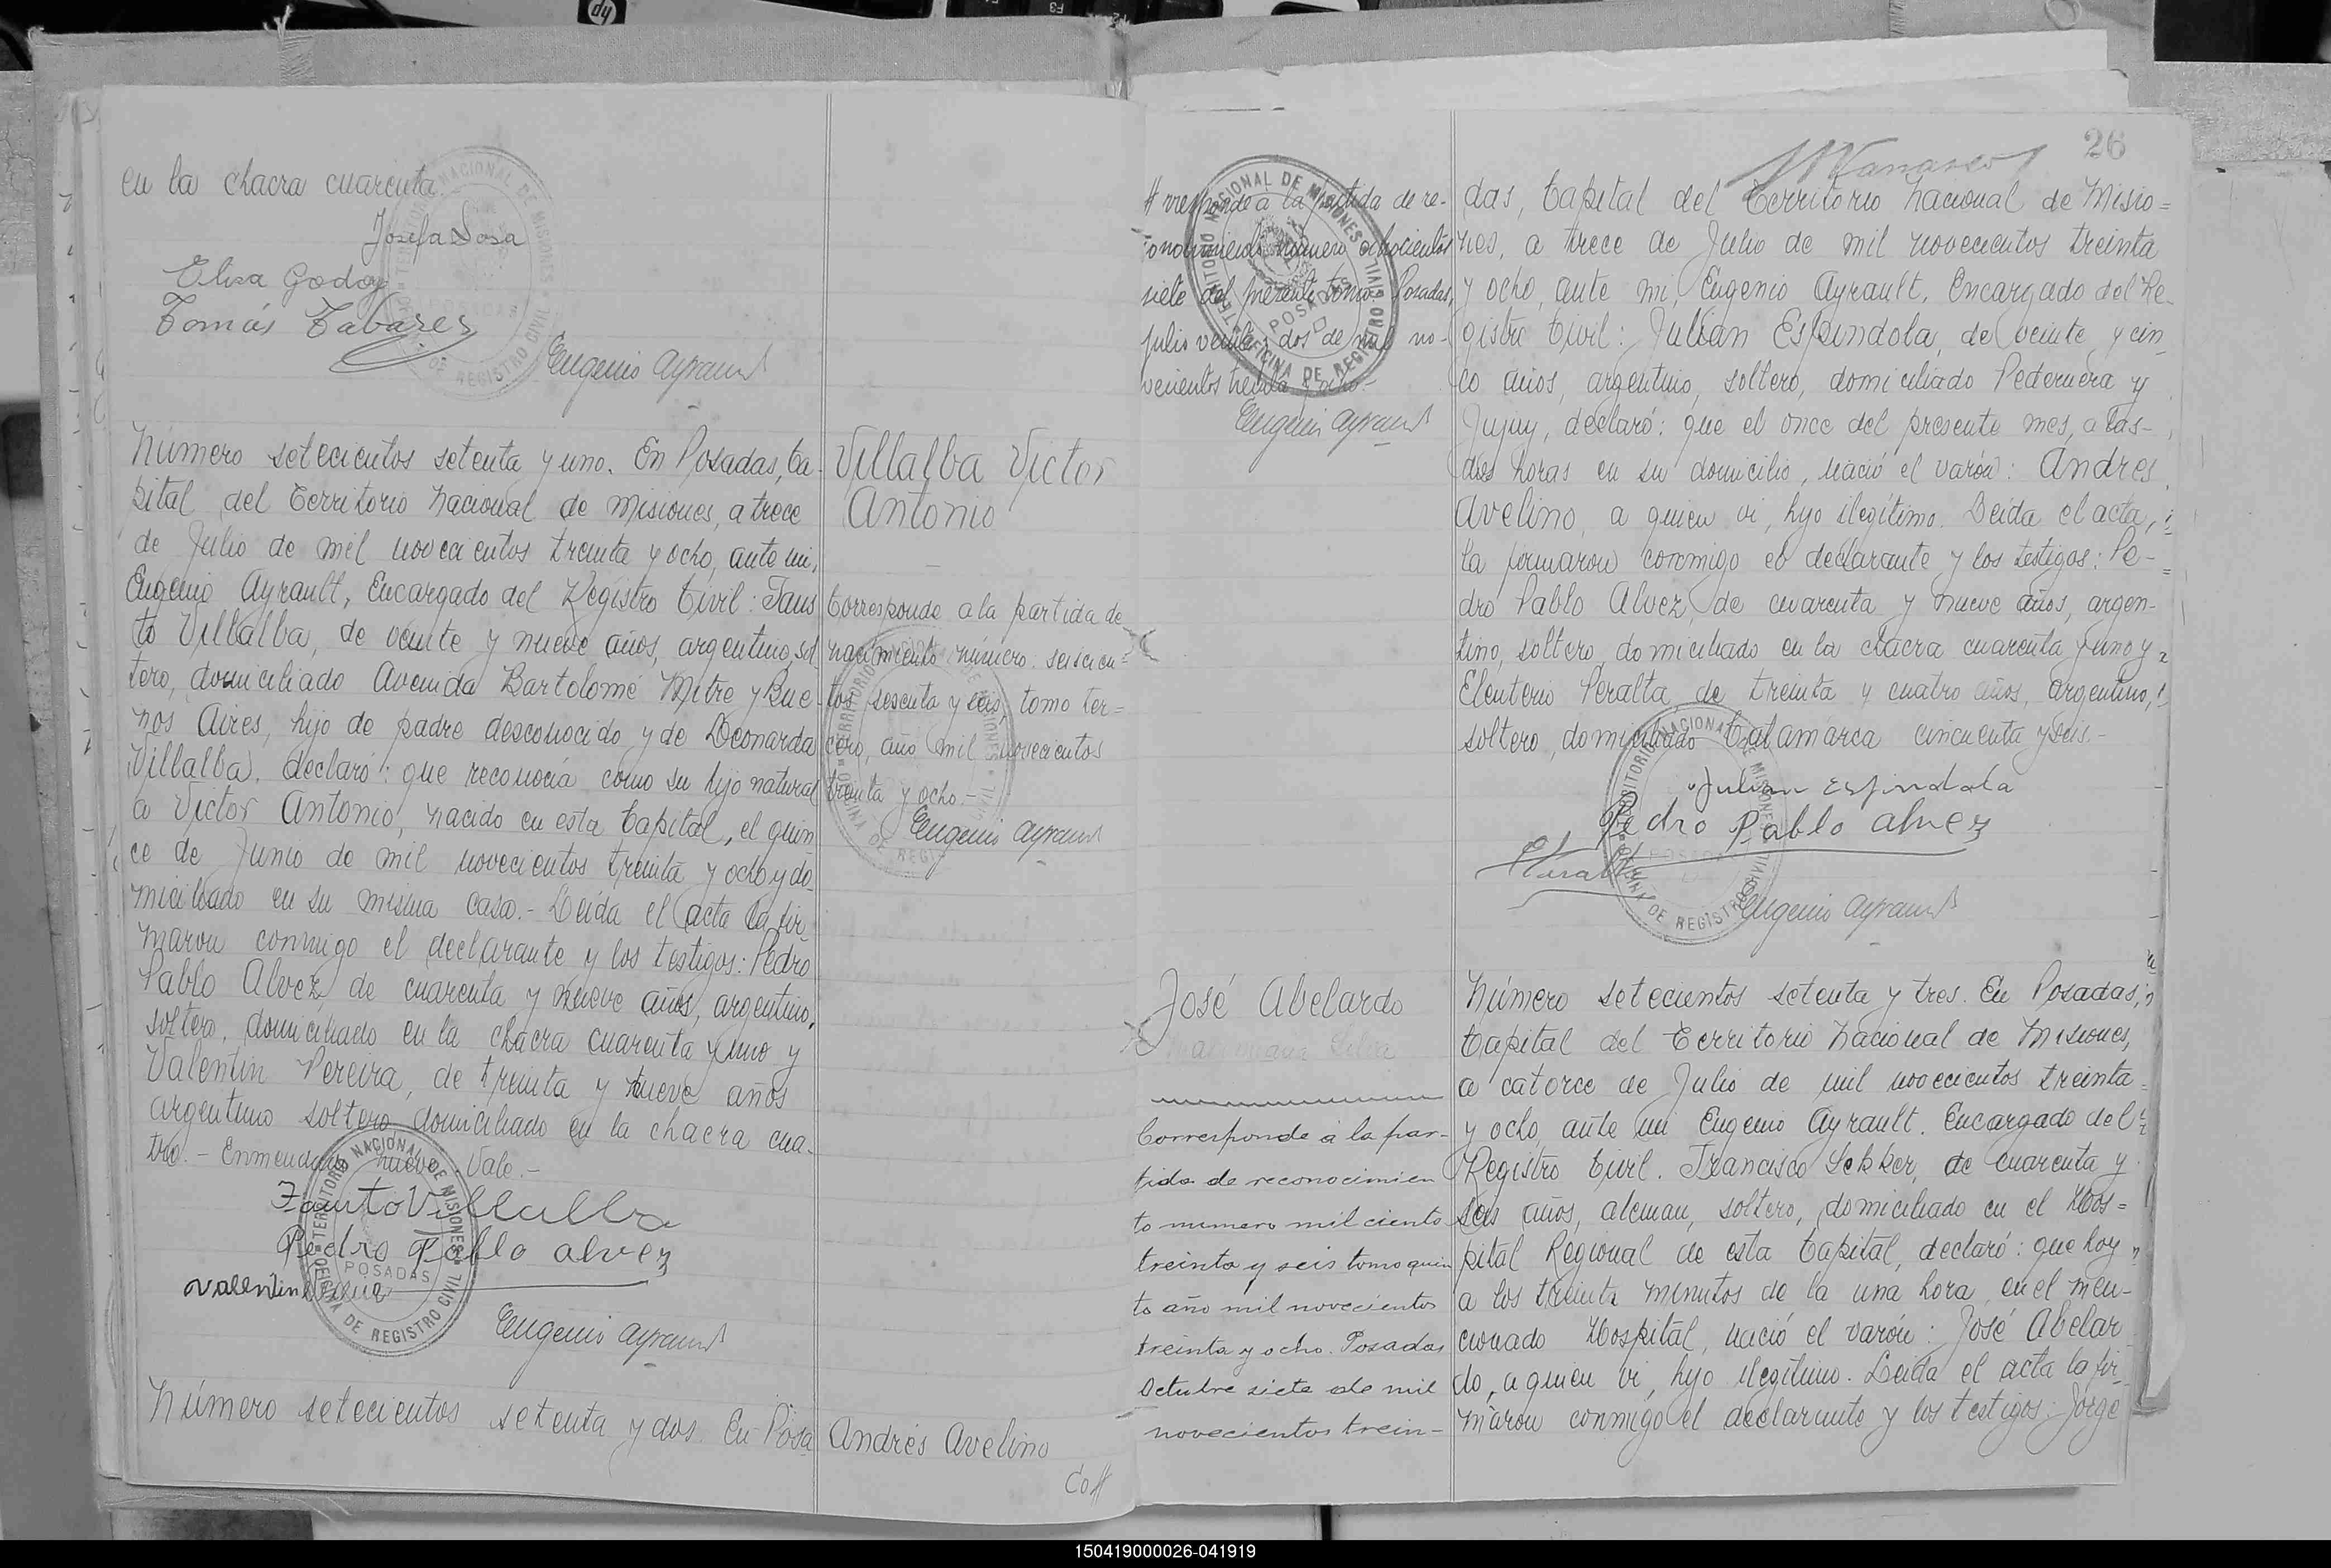 en la chacra cuarenta.
Josefa Sosa
Elisa Godoy
Tomás Tabarez
Eugenio Ayrault
Número setecientos setenta y uno. En Posadas, Ca-
pital del Territorio Nacional de Misiones, a trece
de Julio de mil novecientos treinta y ocho, ante mi,
Eugenio Ayrault, Encargado del Registro Civil: Faus
to Villalba, de veinte y nueve años, argentino, sol
tero, domiciliado Avenida Bartolomé Mitre y Bue
nos Aires, hijo de padre desconocido y de Leonarda
Villalba, declaró: que reconocía como su hijo natural
a Victor Antonio, nacido en esta Capital, el quin
ce de Junio de mil novecientos treinta y ocho y do
miciliado en su misma casa.- Leída el acta la fir
maron conmigo el declarante y los testigos: Pedro
Pablo Alvez, de cuarenta y nueve años, argentino,
soltero, domiciliado en la chacra cuarenta y uno y
Valentin Pereira, de treinta y nueve años
argentino soltero, domiciliado en la chacra cua-
tro.- Enmendado nueve. Vale.-
Fausto Villalba
Pedro Pablo Alvez
Valentin
TERRITORIO NACIONAL DE MISIONES
POSADAS
OFICINA DE REGISTRO CIVIL
Eugenio Ayrault
Número setecientos setenta y dos. En Posa
Villalba Victor
Antonio
Corresponde a la partida de
nacimiento número seiscien=
tos sesenta y seis, tomo ter=
cero, año mil novecientos
treinta y ocho.-
Eugenio Ayrault
Andrés Avelino
Co#
26
# rresponde a la partida de re-
conocimiento número ochocientos
siete del presente tomo. Posadas,
julio veinte y dos de mil no-
vecientos treinta y ocho.-
TERRITORIO NACIONAL DE MISIONES
POSADAS
OFICINA DE REGISTRO CIVIL
Eugenio Ayrault
das, Capital del Territorio Nacional de Misio=
nes, a trece de Julio de mil novecientos treinta
y ocho, ante mi, Eugenio Ayrault, Encargado del Re-
gistro Civil: Julian Espindola, de veinte y cin
co años, argentino, soltero, domiciliado Pedernera y
Jujuy, declaró: que el once del presente mes, a las-
dies horas en su domicilio, nació el varón: Andres
Avelino, a quien vi, hijo ilegítimo. Leída el acta,
la firmaron conmigo el declarante y los testigos: Pe-
dro Pablo Alvez, de cuarenta y nueve años, argen-
tino, soltero, domiciliado en la chacra cuarenta y uno y
Eleuterio Peralta, de treinta y cuatro años, argentino,
soltero, domiciliado Catamarca cincuenta y seis.-
Julian Espindola
Pedro Pablo Alvez
Eugenio Ayrault
José Abelardo
Corresponde a la par-
tida de reconocimien
to numero mil ciento
treinta y seis tomo quin
to año mil novecientos
treinta y ocho. Posadas
Octubre siete de mil
novecientos trein-
Número setecientos setenta y tres. En Posadas,
Capital del Territorio Nacional de Misiones,
a catorce de Julio de mil novecientos treinta
y ocho, ante mi Eugenio Ayrault. Encargado del
Registro Civil. Francisco Sekker, de cuarenta y
seis años, aleman, soltero, domiciliado en el Hos=
pital Regional de esta Capital, declaró: que hoy
a los treinta minutos de la una hora, en el men-
cionado Hospital, nació el varón: José Abelar
do, a quien vi, hijo ilegítimo. Leída el acta la fir-
maron conmigo el declarante y los testigos: Jorge
150419000026-041919